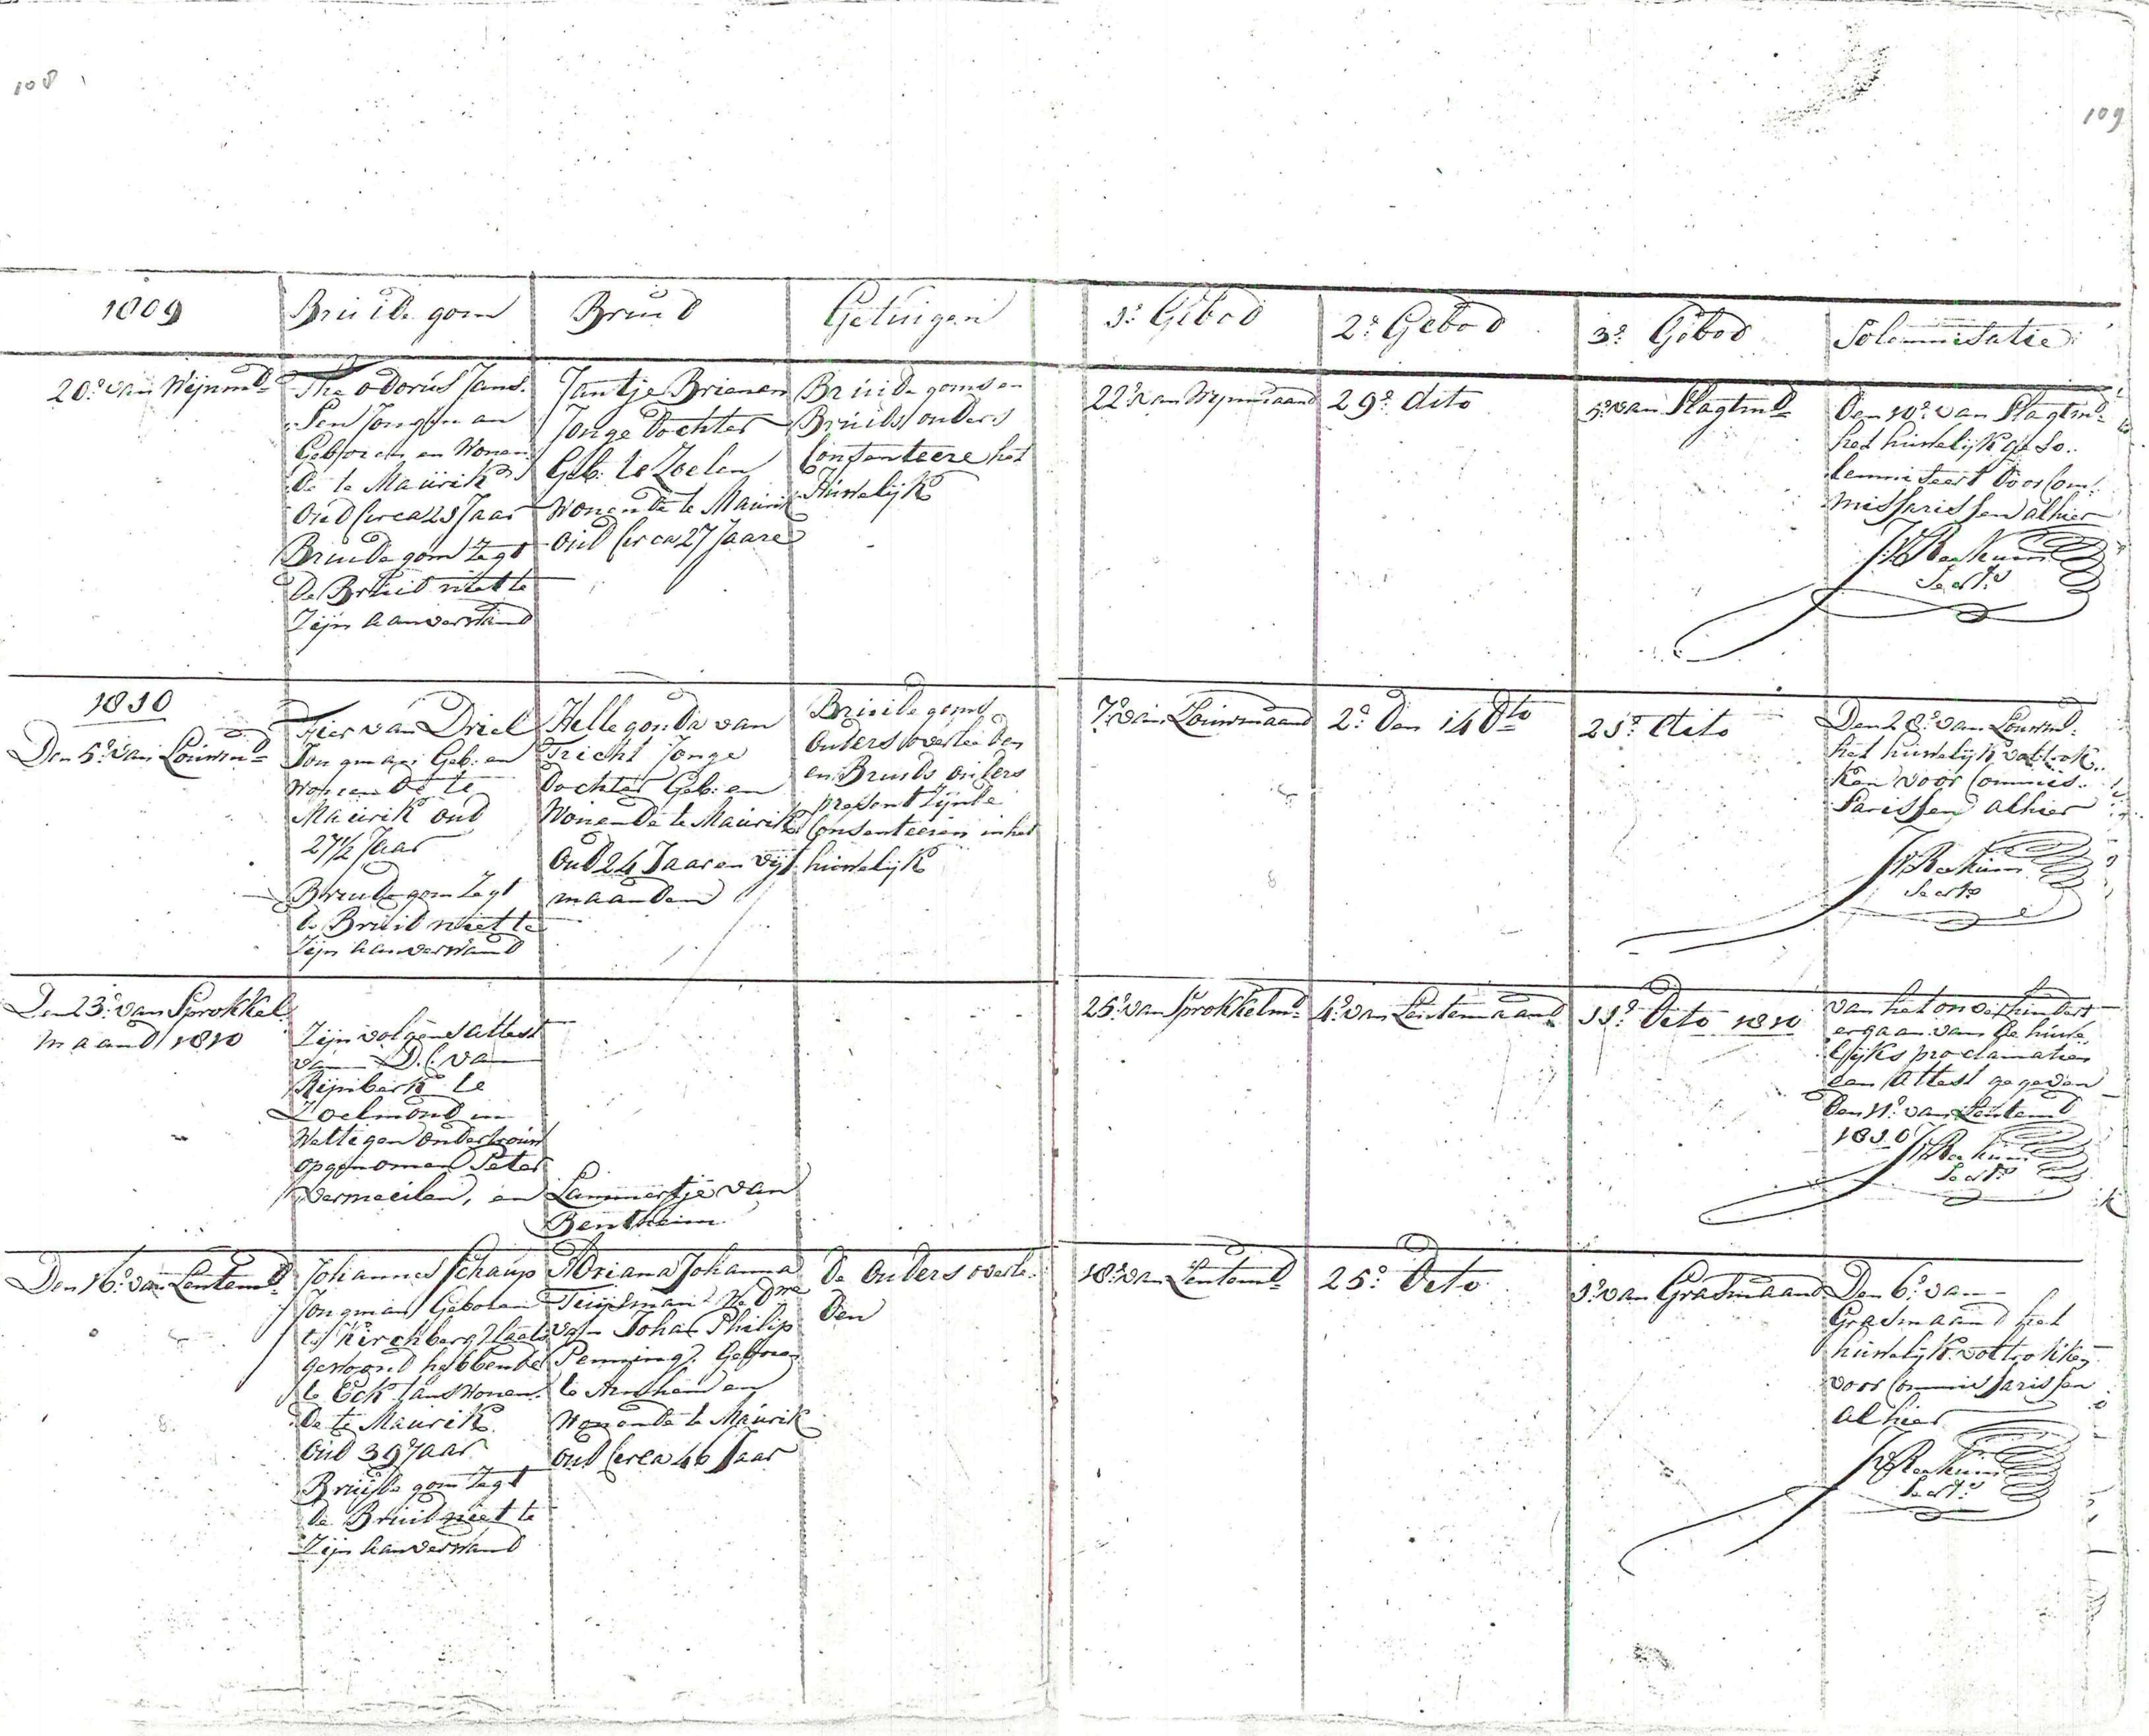 108
109
1809
Bruidegom
Bruid
Getuigen
1e Gebod
2e Gebod
3e Gebod
Solemnisatie
20e van Wijnmd
Theodorus Jans-
sen Jongman
Geboren en Wonen
de te Maurik
oud circa 25 Jaar
Bruidegom zegt
de Bruid niet te
Zijn aanverwand
Jantje Brienen
Jonge Dochter
Geb: te Zoelen
Wonende te Maurik
oud circa 27 Jaare
Bruidegoms en
Bruids ouders
Consenteere het
Huwelijk
22e van Wijnmaand
29e dito
5e van Slagtmd
Den 10e van Slagtmd
het huwelijk geso-
lemniseert voor Com-
missarissen alhier
Secrts
1810
Den 5e van Louwmd
Fier van Driel
Jongman Geb: en
Wonende te
Maurik oud
27 1/2 Jaar
Bruidegom zegt
de Bruid niet te
Zijn aanverwand
Hellegonda van
Tricht Jonge
Dochter Geb: en
Wonende te Maurik
Oud 24 Jaar en vijf
maanden
Bruidegoms
Ouders overleeden
en Bruids ouders
present zijnde
Consenteeren in het
huwelijk
7e van Louwmaand
2e Den 14 Dto
21e dito
Den 28e van Louwmd
het huwelijk voltrok-
ken voor Commis-
sarissen alhier
Secrts
Den 23e van Sprokkel-
maand 1810
Zijn volgens attest
van D. C. van
Rijnberk te
Zoelmond in
Wettigen ondertrouw
opgenomen Peter
Vermeulen, en
Lammertje van
Bentheim
25e van Sprokkelmd
4e van Lentemaand
11e Dito 1810
van het onverhindert
ergaan van de huwe
lijks proclamatien
een Attest gegeven
Den 11e van Lentemd
1810
Secrts
Den 16e van Lentemd
Johannes Schaup
Jongman Geboren
te Kirchberg Laatst
gewoond hebbende
te Eck thans Wonen-
de te Maurik
Oud 39 Jaar
Bruidegom zegt
de Bruid niet te
Zijn aanverwand
Adriana Johanna
Wedwe
van Johan Philip
Penning. Geboren
te Arnhem en
Wonende te Maurik
oud circa 46 Jaar
De Ouders overle-
den
18e van Lentemd
25e Dito
1e van Grasmaand
Den 6e van
Grasmaand het
huwelijk voltrokken
voor Commissarissen
alhier
Secrts